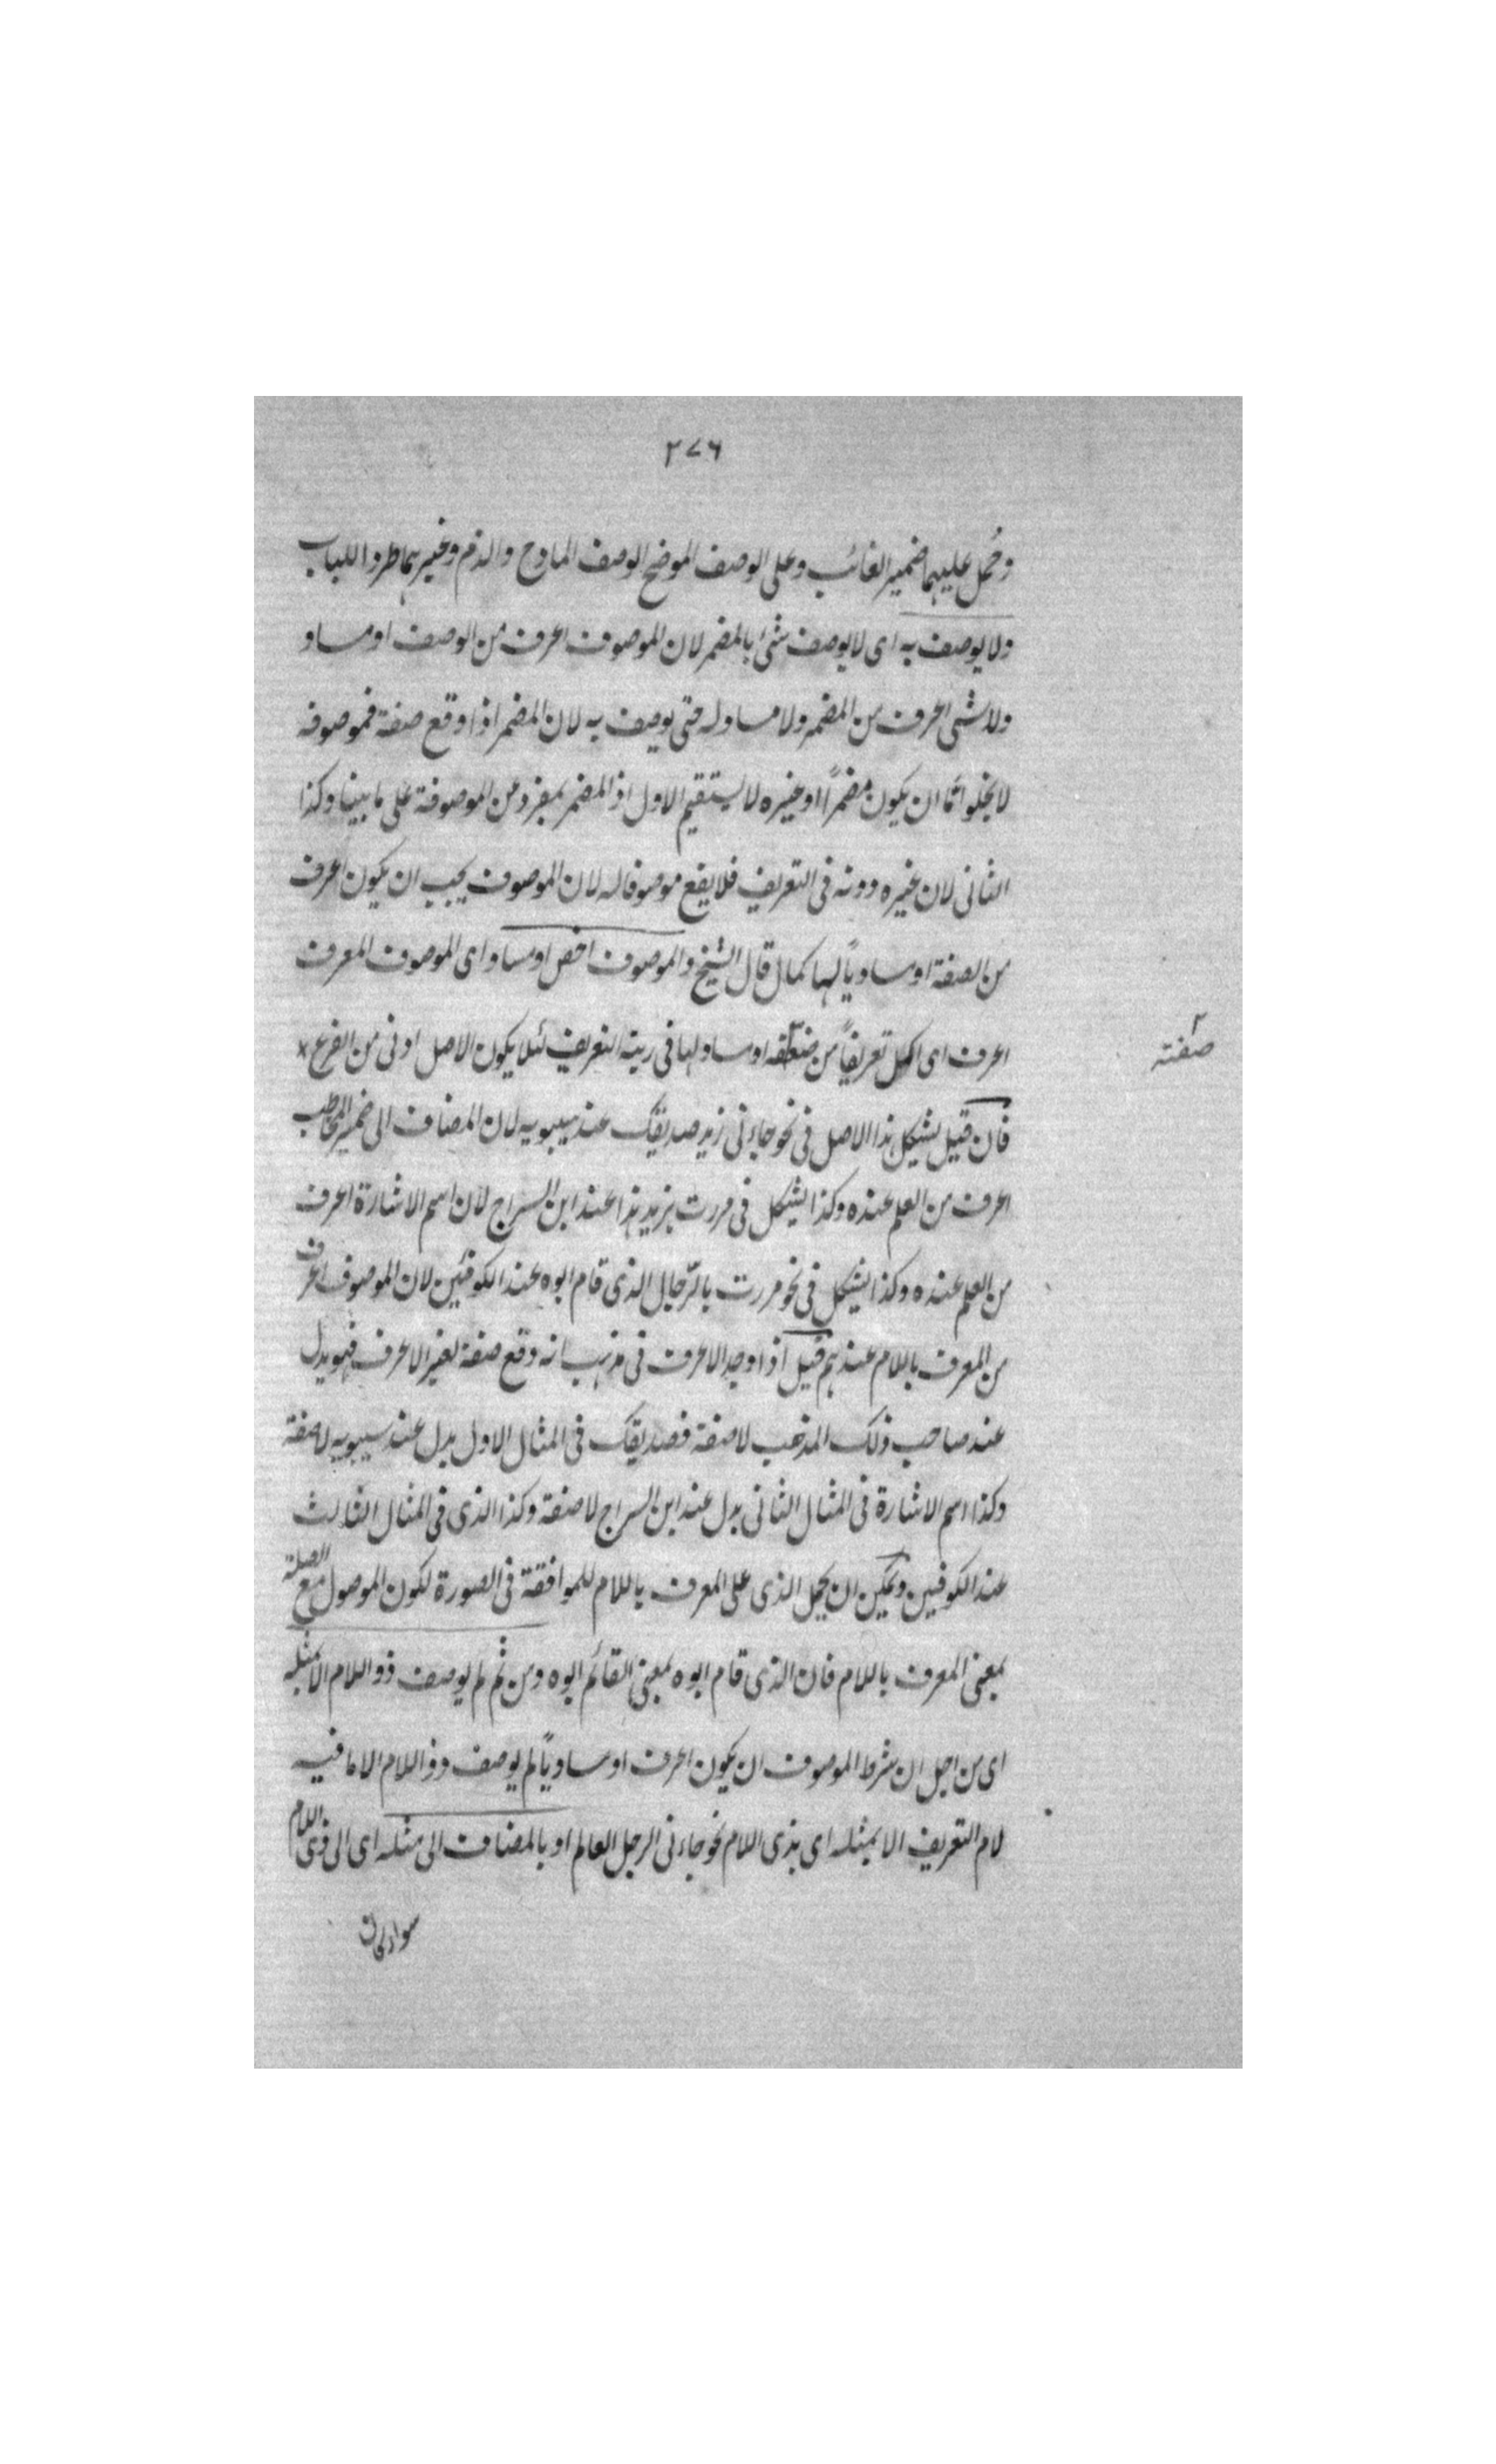 ٢٧٦
وحُمل عليهما ضمير الغائب وعلى الوصف الموضح الوصف المادح والذم وغيرهما طردا للباب
ولا يوصف به اى لا يوصف شئ بالمضمر لان الموصوف اعرف من الوصف او مساو
ولا شئ اعرف من المضمر ولا مساو له حتى يوصف به لان المضمر اذا وقع صفة فموصوفه
لا يخلو امّا ان يكون مضمراً او غيره لا يستقيم الاول اذ المضمر بمفرد من الموصوفة على ما بينا وكذا
الثانى لان غيره دونه فى التعريف فلا يقع موصوفا له لان الموصوف يجب ان يكون اعرف
من الصفة او مساوياً لها كما قال الشيخ والموصوف اخص او مساو اى الموصوف المعرف
اعرف اى اكمل تعريفاً من او مساو لها فى رتبة التعريف لئلا يكون الاصل ادنى من الفرع
صفته
فان قيل يشكل هذا الاصل فى نحو جاءنى زيد صديقك عند سيبويه لان المضاف الى ضمير المخاطب
اعرف من العلم عنده وكذا يشكل فى مررت بزيد هذا عند ابن السراج لان اسم الاشارة اعرف
من العلم عنده وكذا يشكل فى نحو مررت بالرّجال الذى قام ابوه عند الكوفيين لان الموصوف اعرف
من المعرف باللام عندهم قيل اذا وجد الاعرف فى مذهب انه وقع صفة لغير الاعرف فهو بدل
عند صاحب ذلك المذهب لا صفة فصديقك فى المثال الاول بدل عند سيبويه لا صفة
وكذا اسم الاشارة فى المثال الثانى بدل عند ابن السراج لا صفة وكذا الذى فى المثال الثالث
عند الكوفيين ويمكن ان يحمل الذى على المعرف باللام للموافقة فى الصورة لكون الموصول مع الصلة
بمعنى المعرف باللام فان الذى قام ابوه بمعنى القائم ابوه ومن ثم لم يوصف ذو اللام الا بمثله
اى من اجل ان شرط الموصوف ان يكون اعرف او مساوياً لم يوصف ذو اللام الا ما فيه
لام التعريف الا بمثله اى بذى اللام نحو جاءنى الرجل العالم او بالمضاف الى مثله اى الى ذى اللام